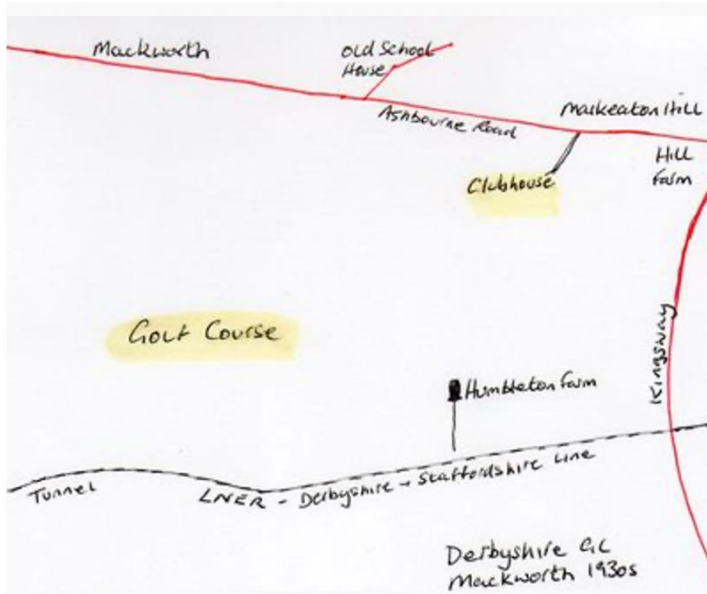 Mackworth
Old School
House
Ashbourne Road
Markeaton Hill
Hill
Farm
Clubhouse
Golf Course
Kingsway
Humbleton Farm
Tunnel
LNER - Derbyshire + Staffordshire Line
Derbyshire GC
Mackworth 1930s